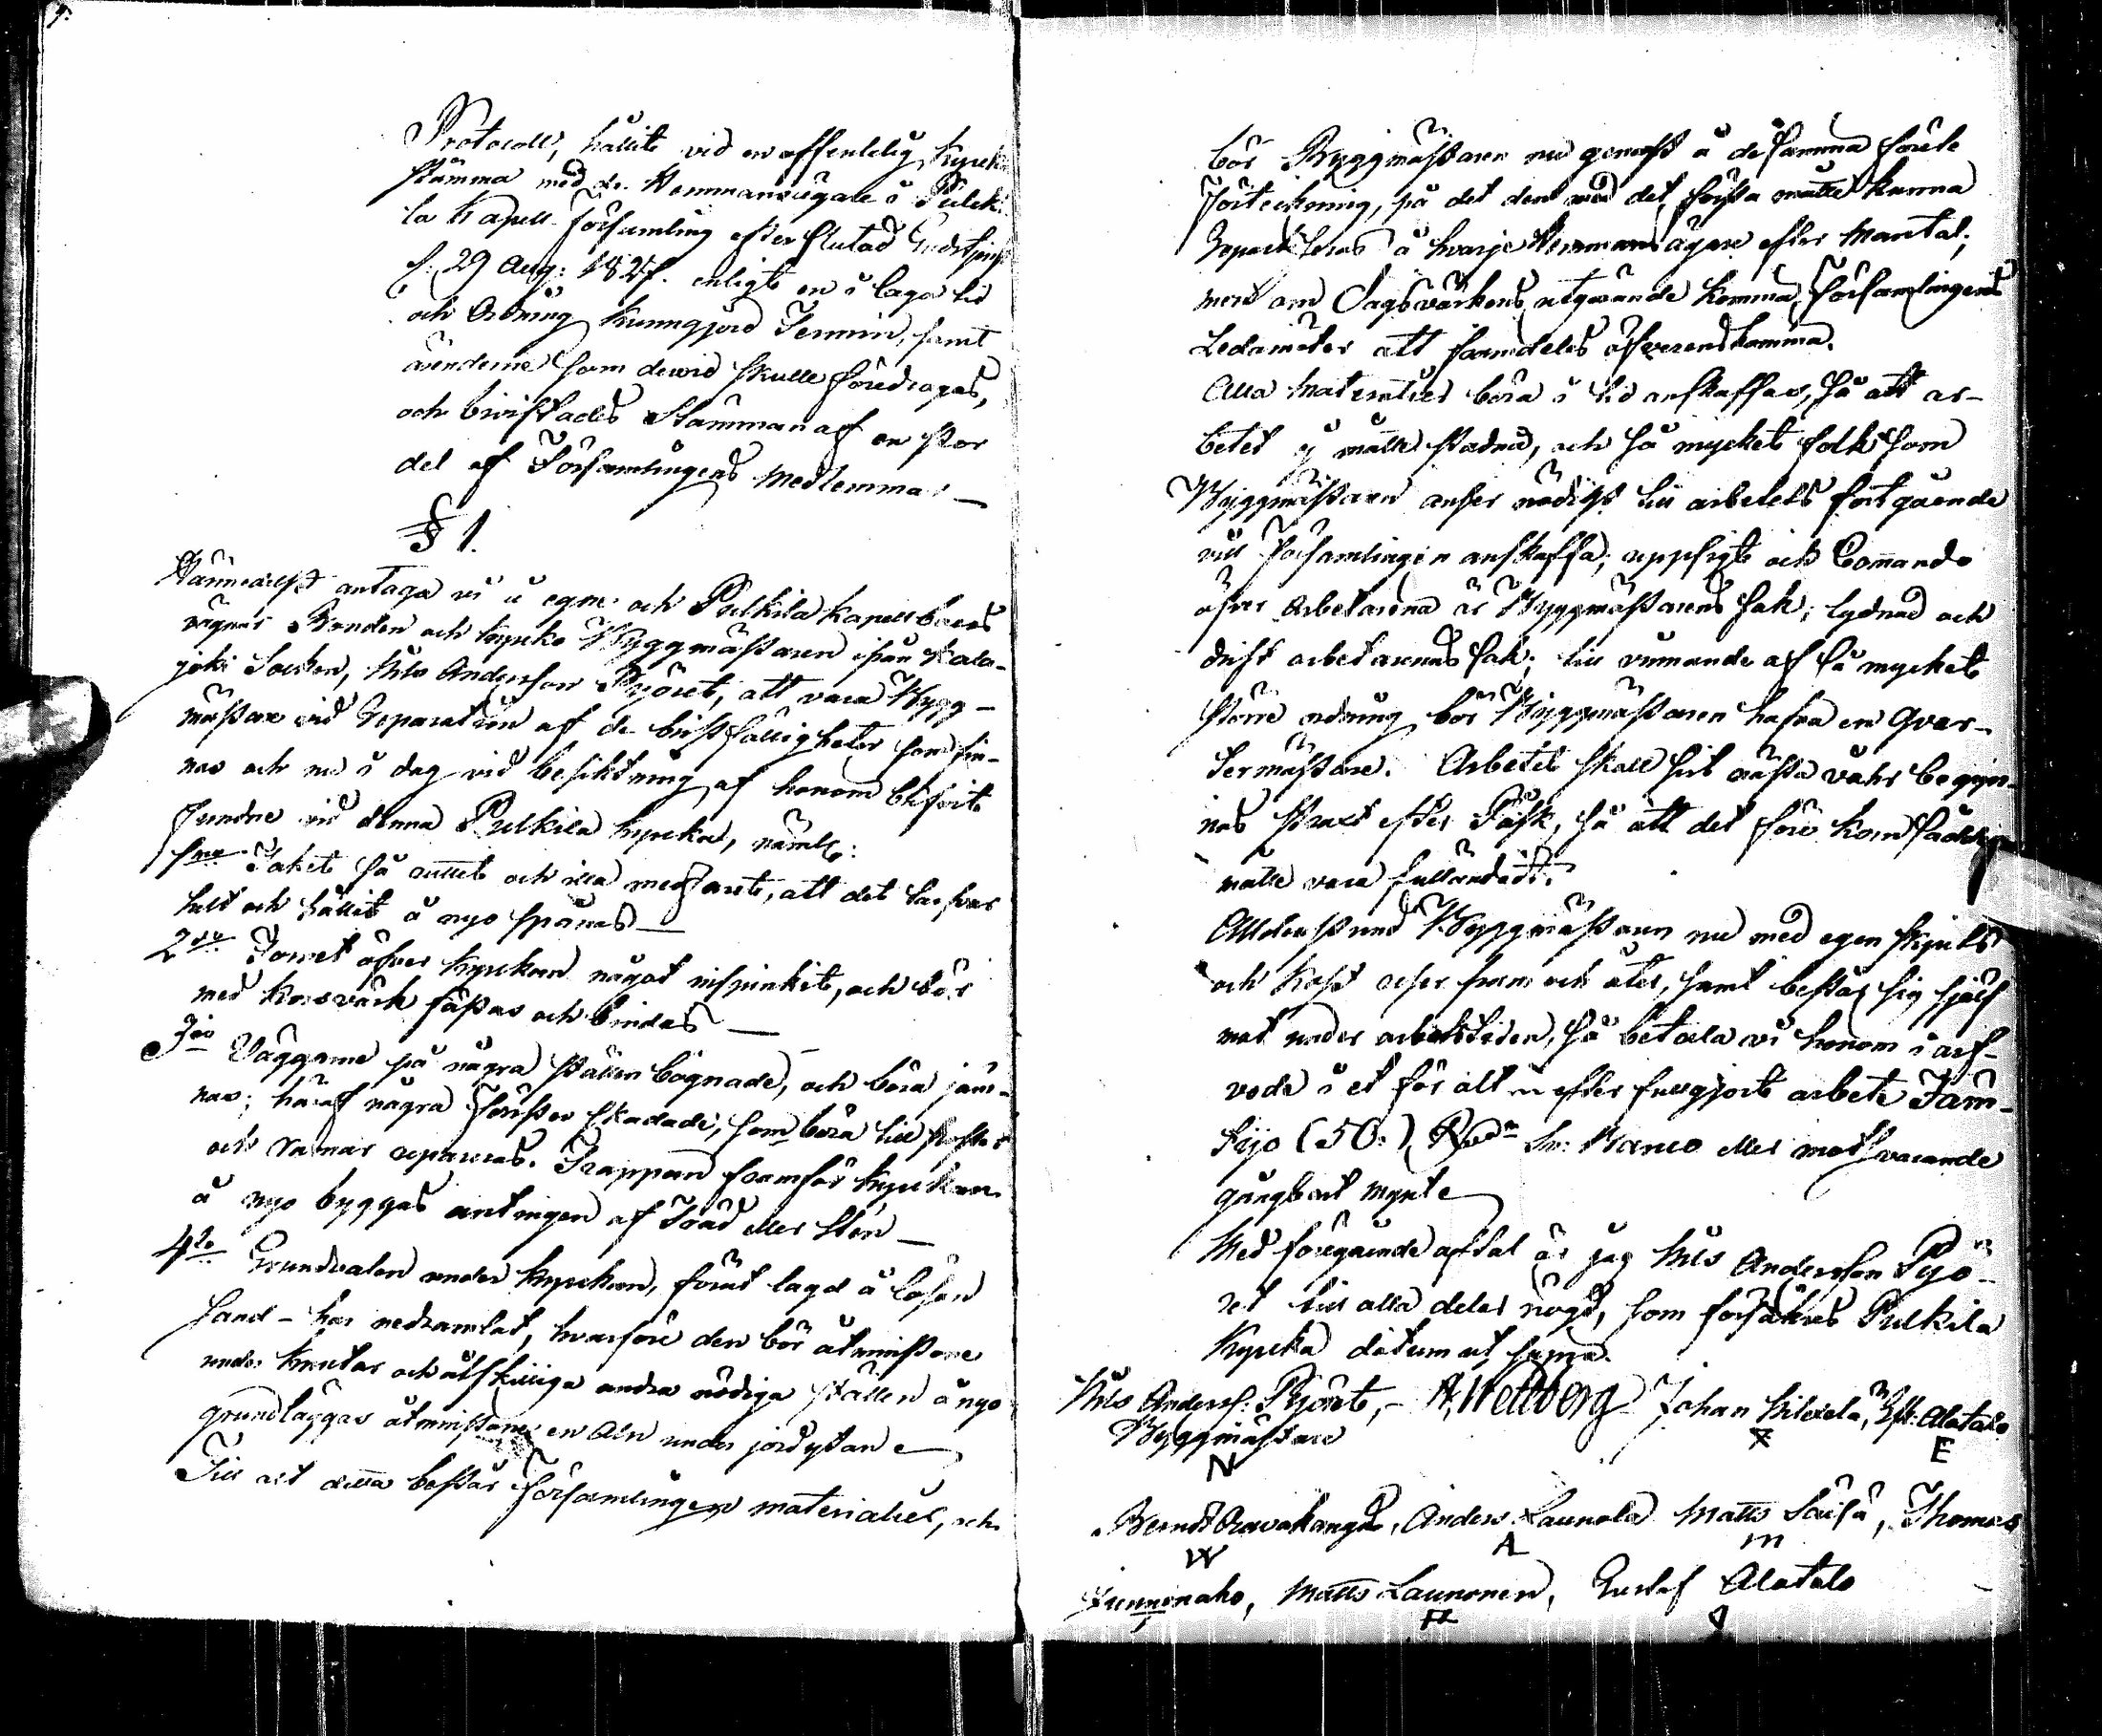 Protocoll, hållit vid en offentelig Kyrck
stämma med de Hemmansägare i Pulcki
la Kapell Församling efter slutad Gudstjenst
d. 29 Aug: 1827. enligt en i laga tid
och Ordning kunngjord Termin, samt
ärenderne som dervid skulle föredragas,
och bivistades Stämman af en stor
del af Församlingens medlemmar —
§ 1.
Hännedelst antaga vi å egne och Pulkila Kapellboers
vägnar Bonden och Kyrko Byggmästaren ifrån Kala-
joki Socken, Nils Andersson Pyöret, att vara Bygg-
mästare vid Reparation af de bristfälligheter som fin-
nas och nu i dag vid besiktning af honom blifvit
fundne vid denna Pulkila kyrcka, nämle:
1mo Taket så ruttet och illa medfarit, att det bör
helt och hållit å nyo spånas —
2do Tornet öfver kyrckan något, och bör
med korsvärk fästas och bindas —
3tio Väggarne på några ställen bögnade, och böra jäm-
nas; häraf några Fönster skadade, som böra till
och ramar repareras. Trappan framför kyrckan
å nyo byggas antingen af Träd eller Sten —
4to Grundvalen under kyrckan, förut lagd å lösan
sand — har nedramlat, hvarföre den bör åtminstone
under knutar och åtskilliga andra nödiga ställen å nyo
grundläggas åtminstone en Aln under jordytan
Till alt detta bestås Församlingen materialier, och
bör Byggmästaren nu genast å desamma förete
Förteckning, på det den med det första måtte kunna
Reparteras å hvarje Hemmansägare efter Mantal,
men om Dagsvärkens utgörande komma Församlingens
Ledamöter att framdeles öfverenskomma.
Alla Materialier böra i tid anskaffas, så att ar-
betet ej måtte stadna, och så mycket folk som
Byggmästaren anser nödigt till arbetets fortgående
vill Församlingen anskaffa; uppsigt och Commando
öfver Arbetarena är Byggmästarens sak; lydnad och
drift arbetarenas sak; till vinnande af så mycket
större ordning bör Byggmästaren hafva en Qvar-
termästare. Arbetet skall sist nästa vahr begyn-
nas straxt efter Påsk, så att det före kornsådden
måtte vara fulländadt.
Alldenstund Byggmästaren nu med egen skjuts
och kost reser fram och åter, samt bestås sig sjelf
mat under arbetstiden, så betala vi honom i arf-
vode i et för alt efter fullgjort arbete Fäm-
tijo (50.) Rdr Sv: Banco eller motsvarande
gångbart mynt
Med föregående aftal är jag Nils Andersson Pyö-
ret till alla delar nögd, som försäkras Pulkila
Kyrcka datum ut supra.
Nils Anderss: Pyöret, — A. Wettberg Johan Kilexela, Alatalo
Byggmästare
N E
Bernd Ravakangas, Anders Launola Matts Saifa, Thomas
W A m
Tunninaho, Matts Launonen, Gustaf Alatalo